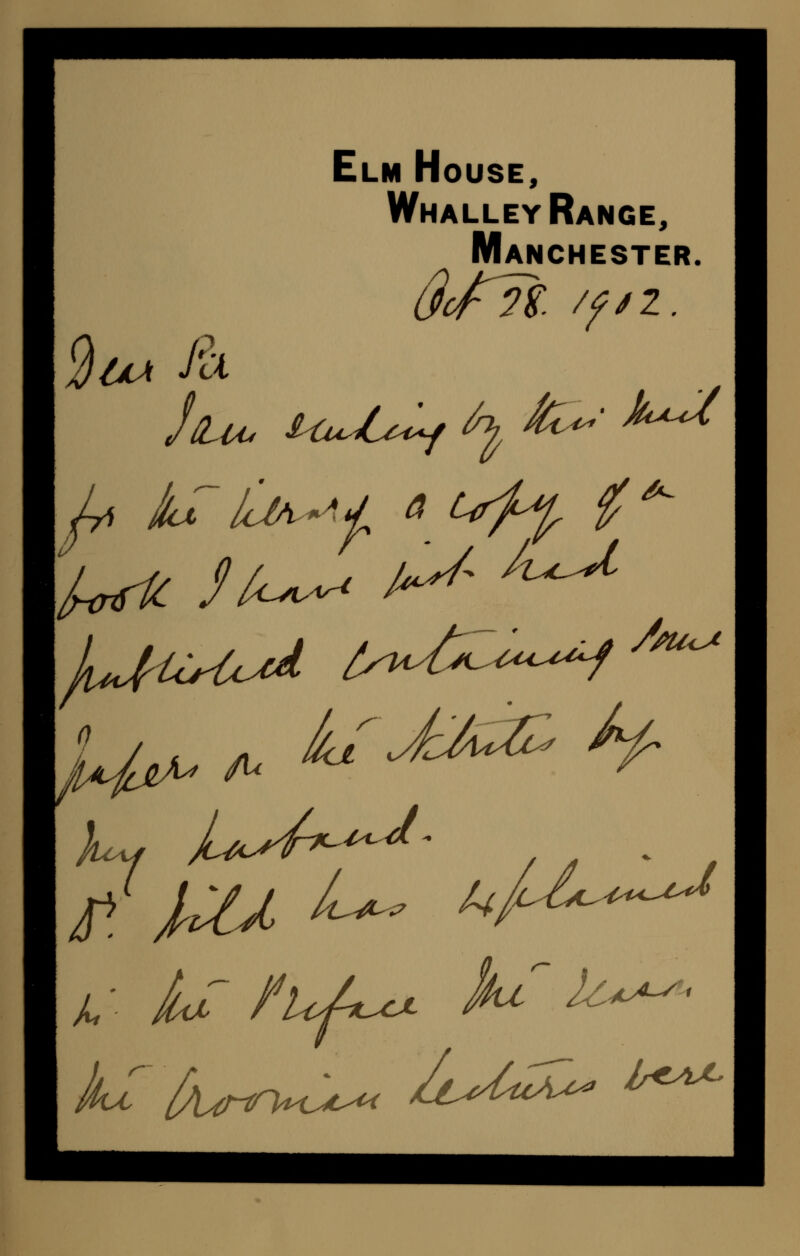 Elm House,
Whalley Range,
Manchester.
Oct 28. 1902.
Dear Sir
I am sending by this mail
for the library a copy of a
book I have just had
published containing some
papers on the Hittites by
my husband.
Dr. Field has explained
in the Preface the reason
the Croonian lectures were